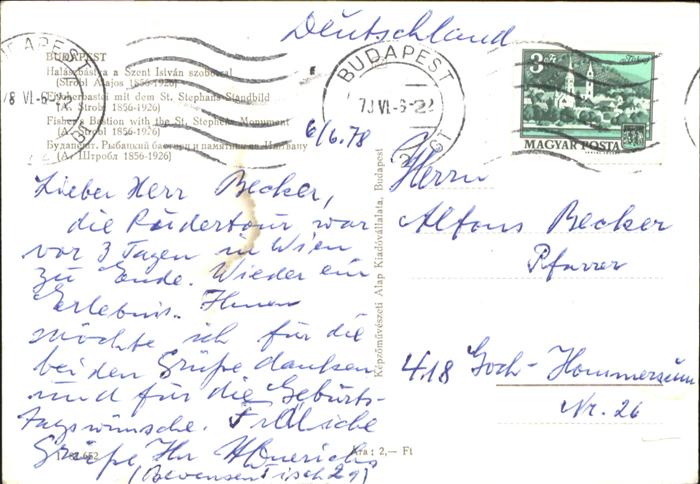 Deutschland
BUDAPEST
Halászbástya a Szent István szoborral
(Stróbl Alajos 1856-1926)
Fischerbastei mit dem St. Stephans Standbild
(A. Strobl 1856-1926)
Fisher's Bastion with the St. Stephen Monument
(A. Strobl 1856-1926)
(А. Штробл 1856-1926)
BUDAPEST
78 VI-6-22
3 Ft
MAGYAR POSTA
6/6.78
Lieber Herr Becker,
die Rudertour war
vor 3 Tagen in Wien
zu Ende. Wieder ein
Erlebnis. Ihnen
möchte ich für die
beiden Grüße danken
und für die Geburts-
tagswünsche. Fröhliche
Grüße Ihr
Képzőművészeti Alap Kiadóvállalata, Budapest
Ára: 2,— Ft
Herrn
Alfons Becker
Pfarrer
418 Goch-Hommersum
Nr. 26